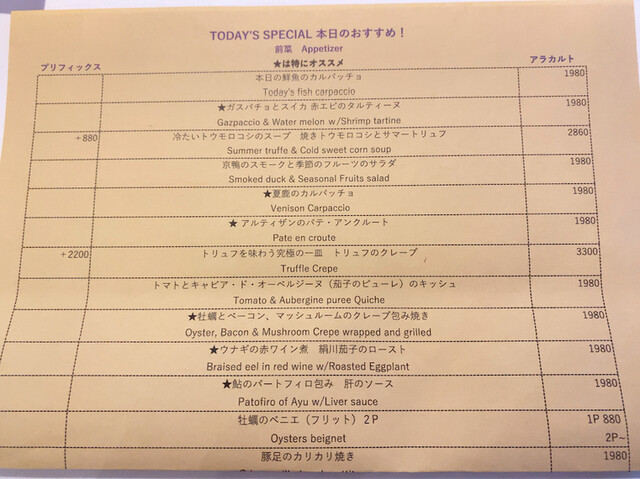 TODAY'S SPECIAL 本日のおすすめ！
前菜 Appetizer
プリフィックス ★は特にオススメ アラカルト
本日の鮮魚のカルパッチョ 1980
Today's fish carpaccio
★ガスパチョとスイカ 赤エビのタルティーヌ 1980
Gazpaccio & Water melon w/Shrimp tartine
+880 冷たいトウモロコシのスープ 焼きトウモロコシとサマートリュフ 2860
Summer truffe & Cold sweet corn soup
京鴨のスモークと季節のフルーツのサラダ 1980
Smoked duck & Seasonal Fruits salad
★夏鹿のカルパッチョ 1980
Venison Carpaccio
★ アルティザンのパテ・アンクルート 1980
Pate en croute
+2200 トリュフを味わう究極の一皿 トリュフのクレープ 3300
Truffle Crepe
トマトとキャビア・ド・オーベルジーヌ（茄子のピューレ）のキッシュ 1980
Tomato & Aubergine puree Quiche
★牡蠣とベーコン、マッシュルームのクレープ包み焼き 1980
Oyster, Bacon & Mushroom Crepe wrapped and grilled
★ウナギの赤ワイン煮 絹川茄子のロースト 1980
Braised eel in red wine w/Roasted Eggplant
★鮎のパートフィロ包み 肝のソース 1980
Patofiro of Ayu w/Liver sauce
牡蠣のベニエ（フリット）２P 1P 880
Oysters beignet 2P~
豚足のカリカリ焼き 1980